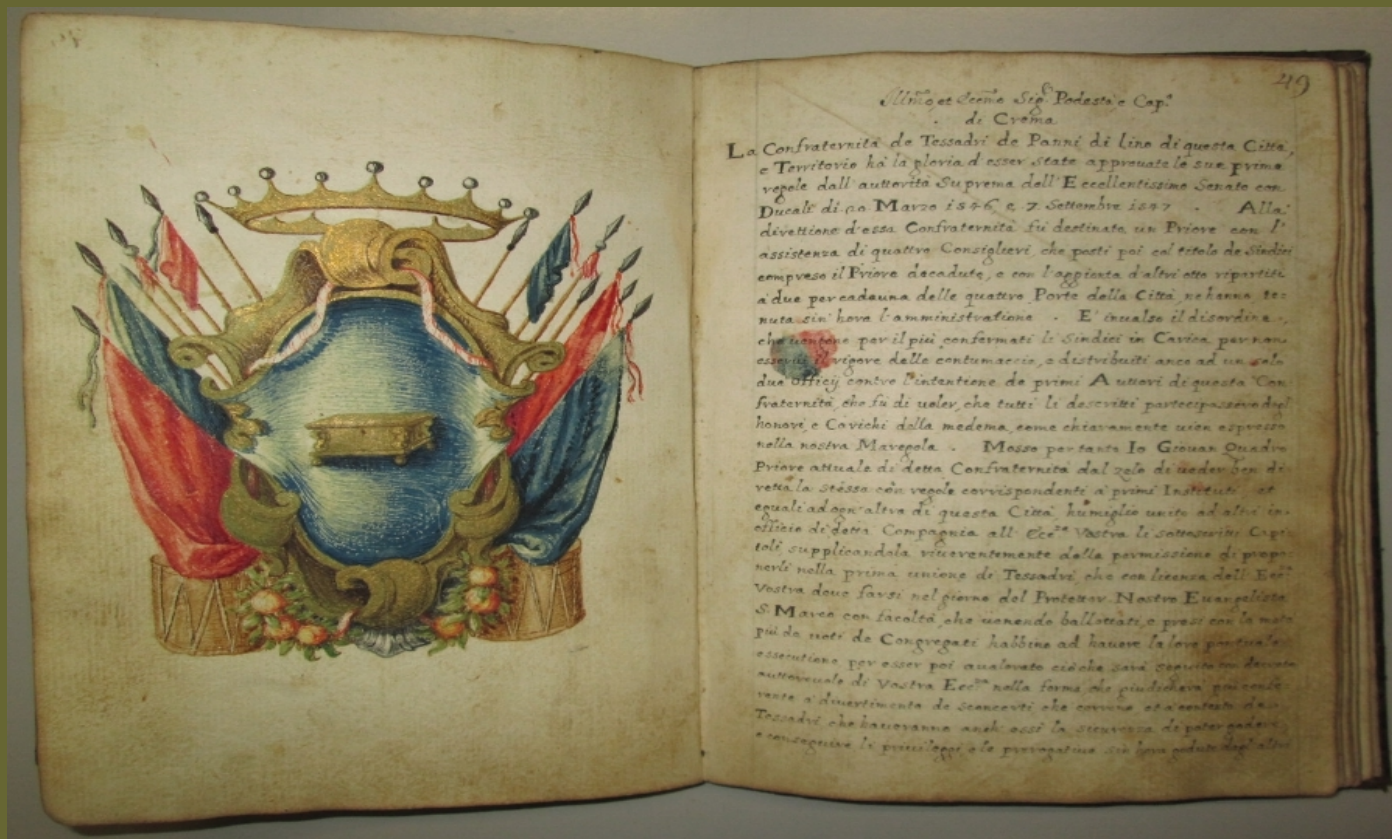 49
Illmo, et Eccmo Sigr Podestà e Capo
di Crema
La Confraternità de Tessadri de Panni di lino di questa Città,
e Territorio hà la gloria d'esser state approvate le sue prime
regole dall'auttorità Suprema dell'Eccellentissimo Senato con
Ducali di 20 Marzo 1546, e 7 Settembre 1547 . Alla
direttione d'essa Confraternità fù destinato un Priore con l'
assistenza di quattro Consiglieri, che posti poi col titolo de Sindici
compreso il Priore decaduto, e con l'aggionta d'altri otto ripartiti
à due per cadauna delle quattro Porte della Città, ne hanno te:
nuta sin'hora l'amministratione . E' invalso il disordine,
che vengono per il più confermati li Sindici in Carica per non
il rigore delle contumaccie, e distribuiti anco ad un solo
due officij contro l'intentione de primi Auttori di questa Con
fraternità, che fu di voler, che tutti li descritti partecipassero degl'
honori, e Carichi della medema, come chiaramente vien espresso
nella nostra Maregola . Mosso per tanto Io Giovan Quadro
Priore attuale di detta Confraternità dal zelo di veder ben di
retta la stessa con regole corrispondenti a' primi Instituti, et
eguali ad ogn'altra di questa Città, humiglio unito ad altri in
officio di detta Compagnia all'Ecc.za Vostra li sottoscritti Capi
toli supplicandola riverentemente della permissione di propo:
nerli nella prima unione di Tessadri, che con licenza dell'Ecc.za
Vostra deve farsi nel giorno del Protettor Nostro Evangelista
S. Marco con facoltà, che venendo ballottati, e presi con la metà
più de voti de Congregati habbino ad havere la loro pontuale
essecutione per esser poi avalorato ciò che sarà seguito con decreto
auttorevole di Vostra Ecc.za nella forma, che giudicherà più confe
rente a' divertimento de sconcerti che corrono et a contento de
Tessadri, che haveranno anch'essi la sicurezza di poter godere,
e conseguire li privileggi, e le prerogative sin hora godute dagl'altri